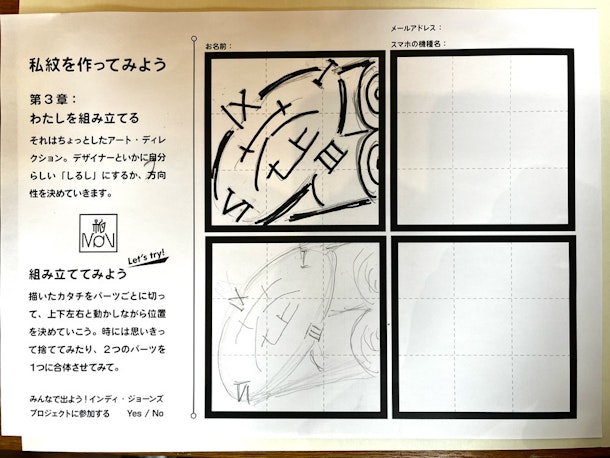 メールアドレス：
お名前：
スマホの機種名：
私紋を作ってみよう
第３章：
わたしを組み立てる
それはちょっとしたアート・ディレ
クション。デザイナーといかに自分
らしい「しるし」にするか、方向
性を決めていきます。
Let's try!
組み立ててみよう
描いたカタチをパーツごとに切っ
て、上下左右と動かしながら位置
を決めていこう。時には思いきっ
て捨ててみたり、２つのパーツを
１つに合体させてみて。
みんなで出よう！インディ・ジョーンズ
プロジェクトに参加する　Yes / No